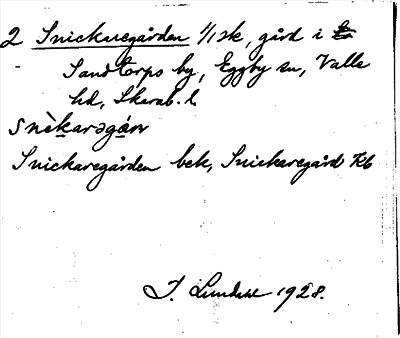 2 Snickaregården 1/1 sk, gård i
Sandtorps by, Eggby sn, Valle
hd, Skarab. l.
snèkarəgán
Snickaregården bek, Snickaregård Kb
J. Lundahl 1928.